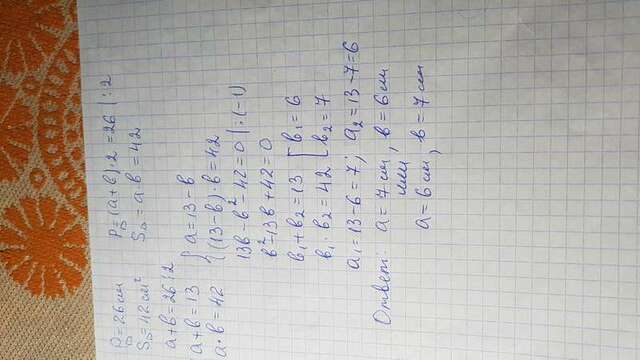 P▭=26см P▭=(a+b)·2=26 | :2
S▭=42см² S▭=a·b=42
a+b=26:2
a+b=13 { a=13-b
a·b=42 { (13-b)·b=42
13b-b²-42=0 | :(-1)
b²-13b+42=0
b₁+b₂=13 [ b₁=6
b₁·b₂=42 [ b₂=7
a₁=13-6=7; a₂=13-7=6
Ответ: a=7см, b=6см
или
a=6см, b=7см